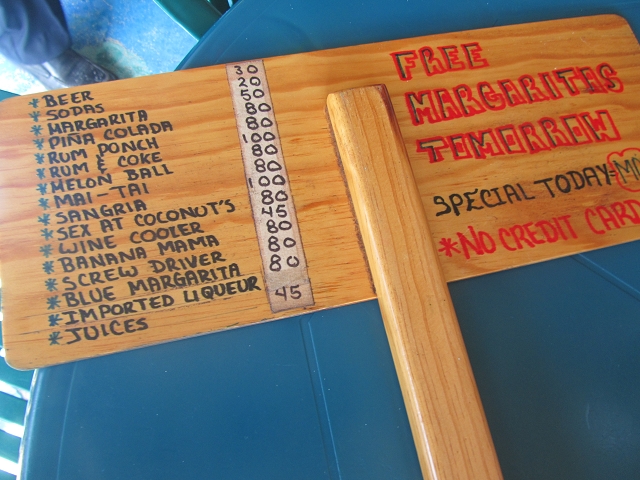 * BEER 30
* SODAS 25
* MARGARITA 50
* PIÑA COLADA 80
* RUM PONCH 80
* RUM & COKE 80
* MELON BALL 100
* MAI-TAI 80
* SANGRIA 80
* SEX AT COCONUT'S 100
* WINE COOLER 80
* BANANA MAMA 45
* SCREW DRIVER 80
* BLUE MARGARITA 80
* IMPORTED LIQUEUR 80
* JUICES 45
FREE
MARGARITAS
TOMORROW
SPECIAL TODAY-
* NO CREDIT CAR